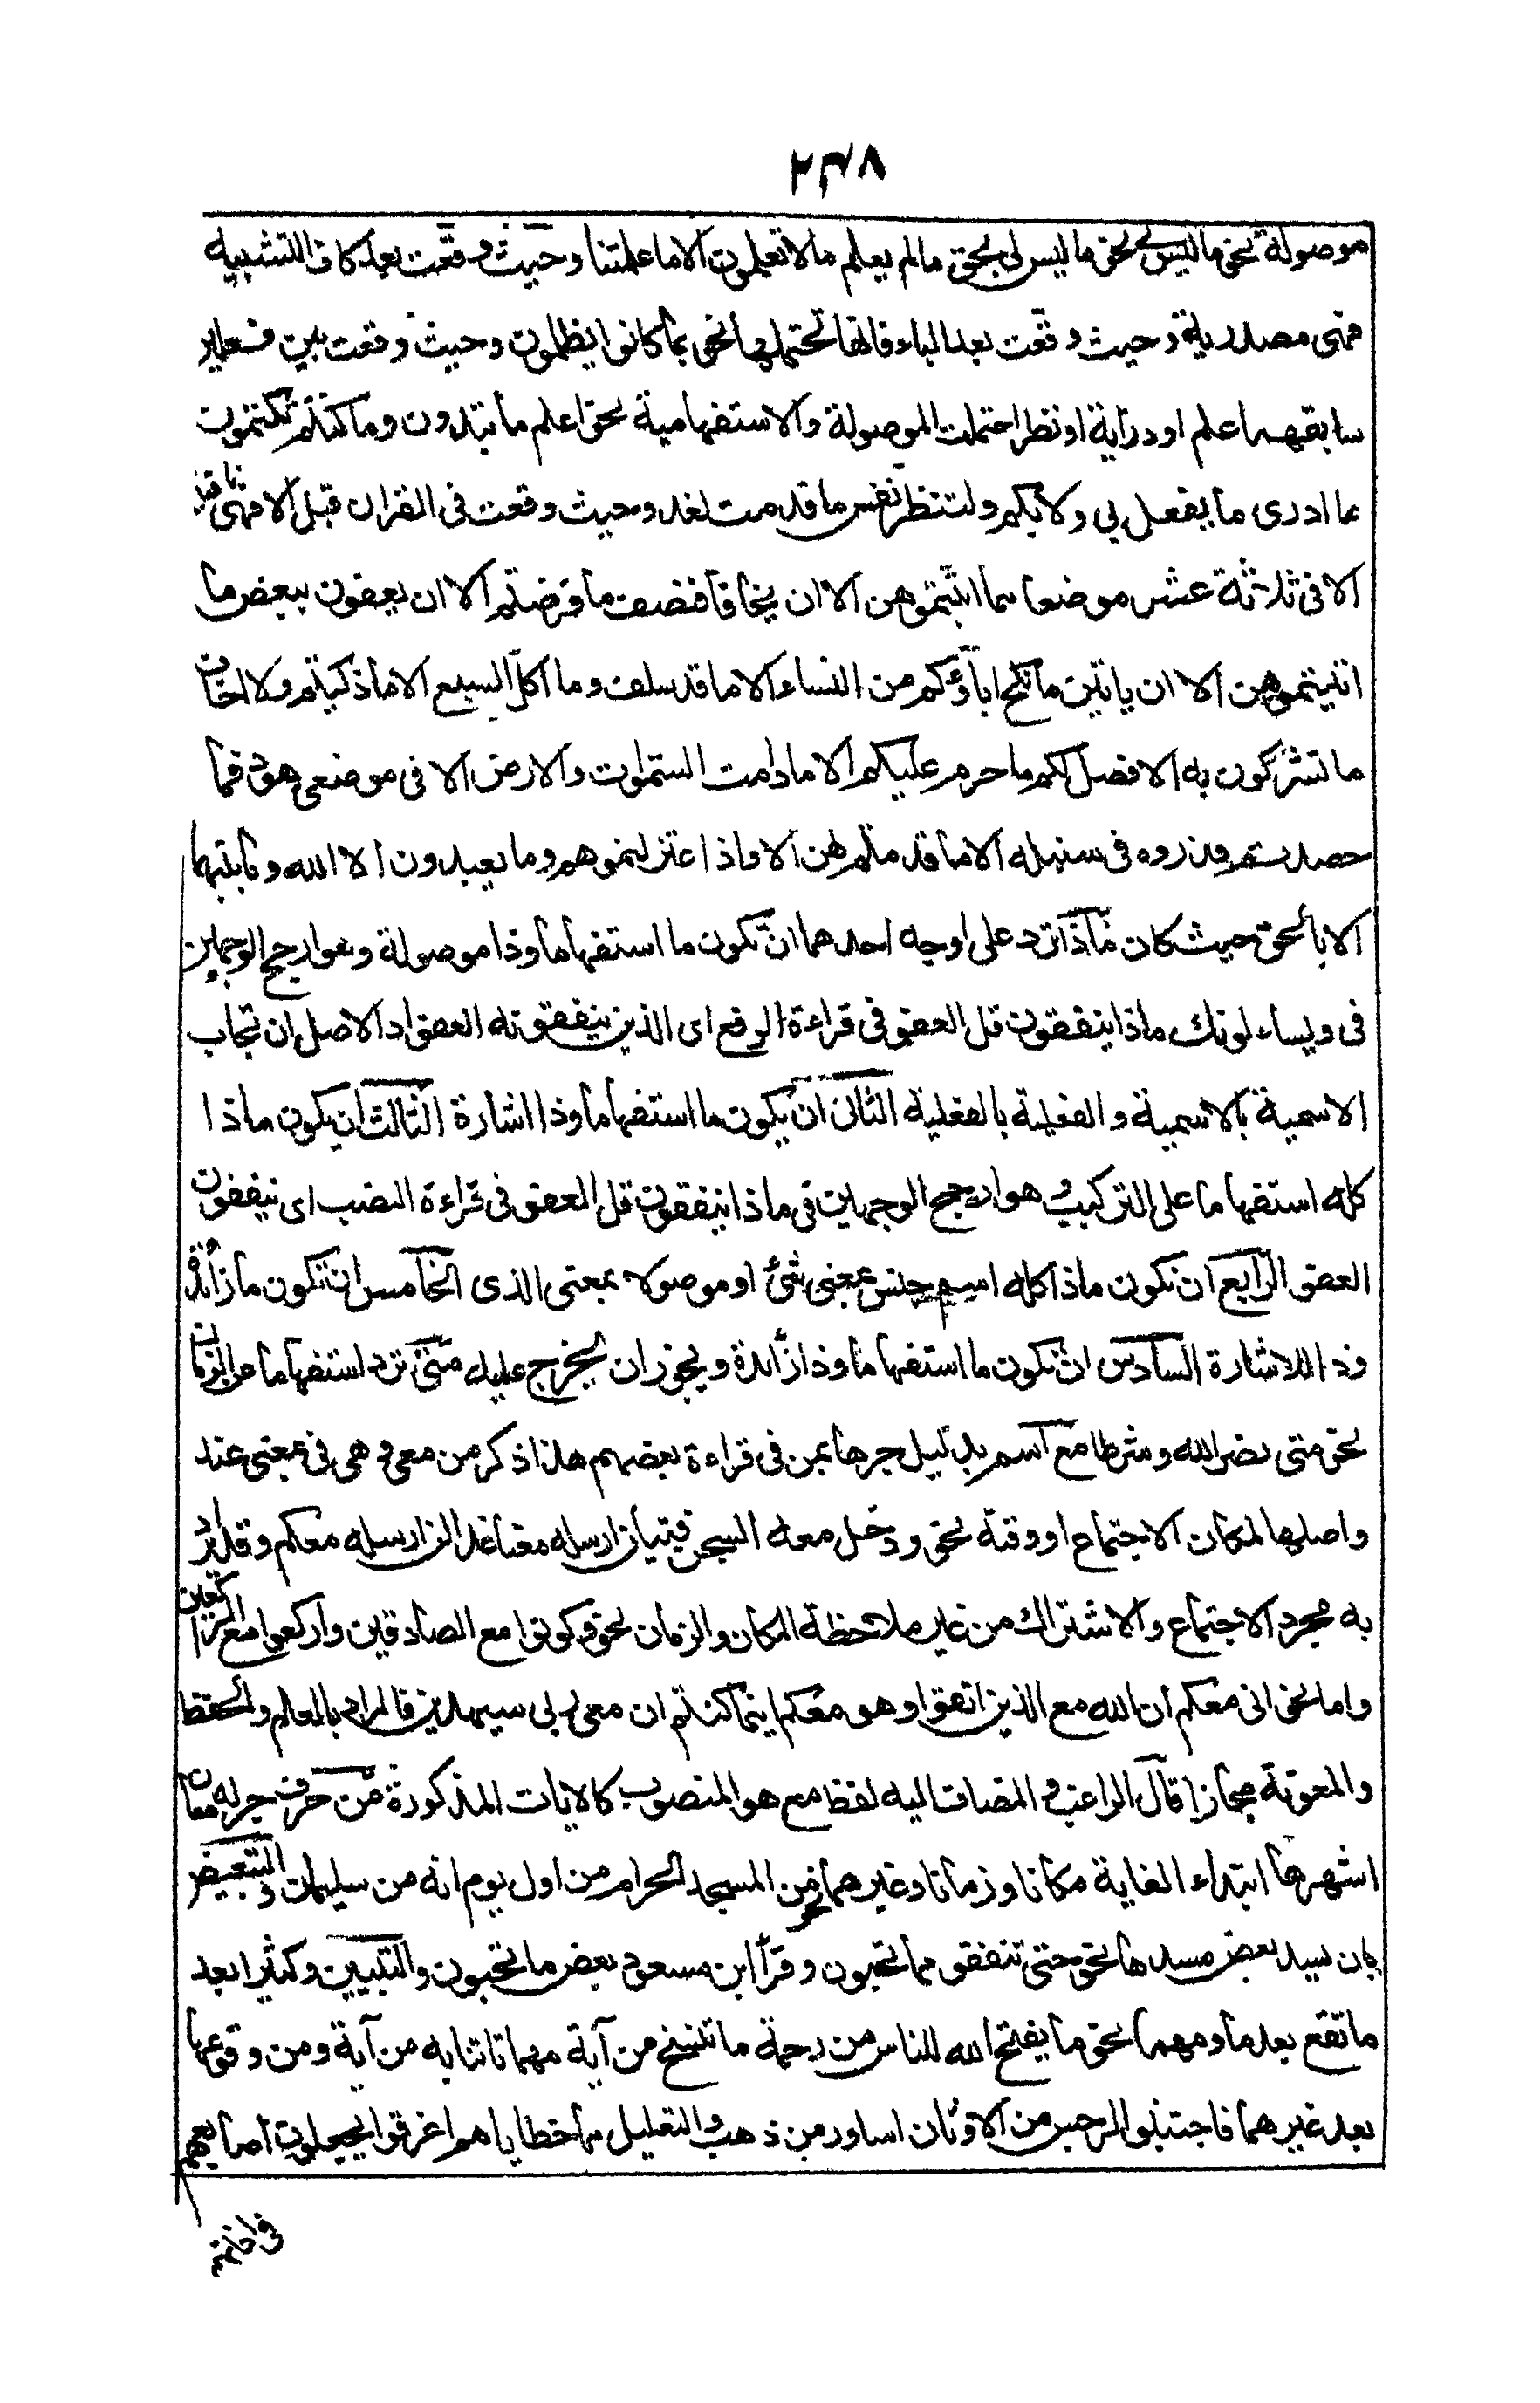 ٢٣٨
موصولة نحو ما ليس نحو ما ليس لى بحق مالم يعلم مالا تعلمون الا ما علمتنا وحيث وقعت بعد كاف التشبيه
فهى مصدرية وحيث وقعت بعد الباء فانها تحتملهما نحو بما كانوا يظلمون وحيث وقعت بين فعلين
سابقهما علم او دراية او نظر احتملت الموصولة والاستفهامية نحو اعلم ما تبدون وما كنتم تكتمون
ما ادرى ما يفعل بى ولا بكم ولتنظر نفس ما قدمت لغد وحيث وقعت فى القران قبل الا فهى نافية
الا فى ثلاثة عشر موضعا مما اتيتموهن الا ان يخافا فنصف ما فرضتم الا ان يعفون ببعض ما
اتيتموهن الا ان ياتين ما نكح اباؤكم من النساء الا ما قد سلف وما اكل السبع الا ما ذكيتم ولا اخاف
ما تشركون به الا فصل لكم ما حرم عليكم الا ما دامت السموات والارض الا فى موضعى هود فما
حصدتم فذروه فى سنبله الا ما قدمتم لهن الا واذا اعتزلتموهم وما يعبدون الا الله وما بينهما
الا بالحق حيث كان ماذا ترد على اوجه احدهما ان تكون ما استفهاما وذا موصولة وهو ارجح الوجهين
فى ويساءلونك ماذا ينفقون قل العفو فى قراءة الرفع اى الذين ينفقونه العفو اد الاصل ان تجاب
الاسمية بالاسمية والفعلية بالفعلية الثانى ان يكون ما استفهاما وذا اشارة الثالث ان يكون ماذا
كله استفهاما على التركيب وهو ارجح الوجهين فى ماذا ينفقون قل العفو فى قراءة النصب اى ينفقون
العفو الرابع ان تكون ماذا كله اسم جنس بمعنى شئ او موصولا بمعنى الذى الخامس ان تكون ما زائدة
وذا للاشارة السادس ان تكون ما استفهاما وذا زائدة ويجوز ان يخرج عليه متى ترد استفهاما عن الزمان
نحو متى نصر الله وشرطا مع اسم بدليل جرها بمن فى قراءة بعضهم هذا ذكر من معى وهى فى معنى عند
واصلها لمكان الاجتماع او وقته نحو ودخل معه السجن فتيان ارسله معنا غدا لن ارسله معكم وقد يراد
به مجرد الاجتماع والاشتراك من غير ملاحظة المكان والزمان نحو وكونوا مع الصادقين واركعوا مع الراكعين
واما نحو انى معكم ان الله مع الذين اتقوا وهو معكم اينما كنتم ان معى ربى سيهدين فالمراد بالعلم والحفظ
والمعونة مجازا قال الراغب والمضاف اليه لفظ مع هو المنصوب كالايات المذكورة من حرف جر له معان
اشهرها ابتداء الغاية مكانا وزمانا وغيرهما نحو من المسجد الحرام من اول يوم انه من سليمان والتبعيض
بان يسد بعض مسدها نحو حتى تنفقوا مما تحبون وقرأ ابن مسعود بعض ما تحبون والتبيين وكثيرا بعد
ما تقع بعد ما ومهما نحو ما يفتح الله للناس من رحمة ما ننسخ من آية مهما تاتنا به من آية ومن وقوعها
بعد غيرهما فاجتنبوا الرجس من الاوثان اساور من ذهب والتعليل مما خطاياهم اغرقوا يجعلون اصابعهم
فى اذانهم